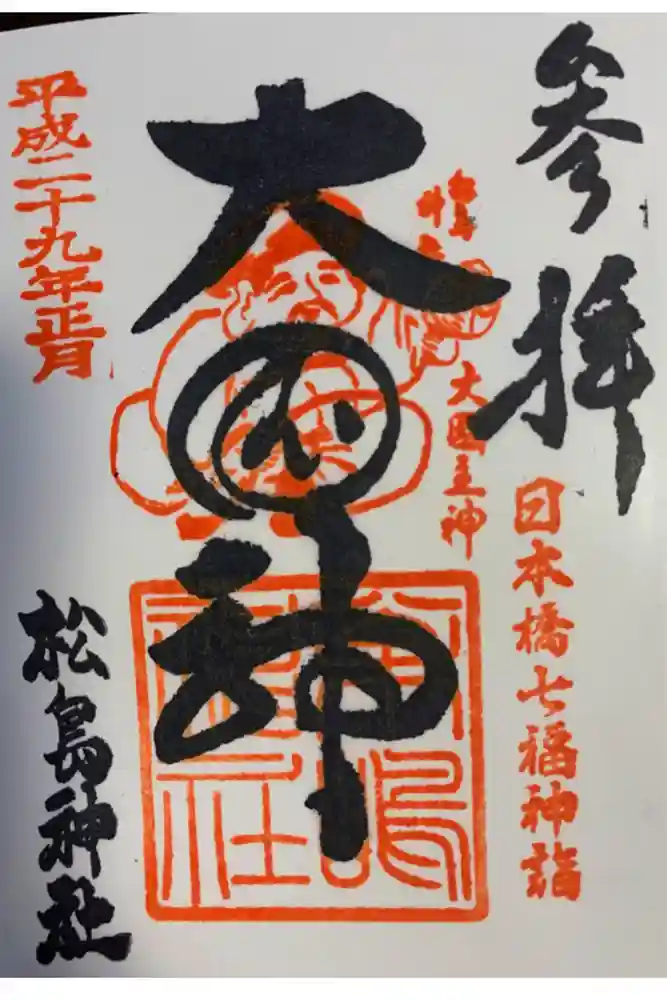 参拝
日本橋七福神詣
大國主神
大国神
松嶋神社
平成二十九年正月
松島神社